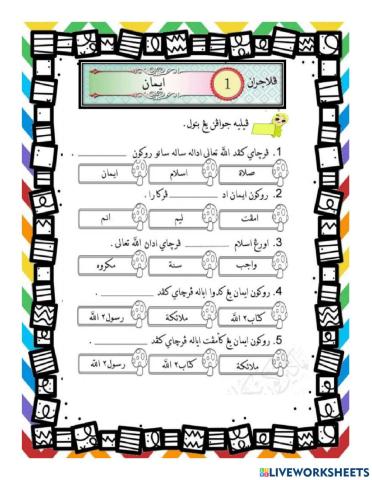 ڤلاجرن 1 ايمان
ڤيليه جواڤن يڠ بتول.
1. ڤرچاي كڤد الله تعالى اداله ساله ساتو روكون ________ .
صلاة اسلام ايمان
2. روكون ايمان اد ________ ڤركارا .
امڤت ليم انم
3. اورڠ اسلام ________ ڤرچاي اكن الله تعالى .
واجب سنة مكروه
4. روكون ايمان يڠ كدوا اياله ڤرچاي كڤد ________ .
كتاب٢ الله ملائكة رسول٢ الله
5. روكون ايمان يڠ كأمڤت اياله ڤرچاي كڤد ________ .
ملائكة كتاب٢ الله رسول٢ الله
LIVEWORKSHEETS